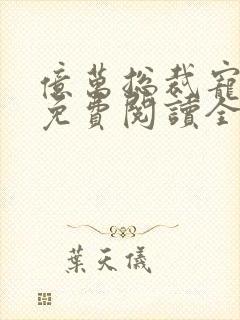 億萬總裁寵
免費閱讀全
葉天儀